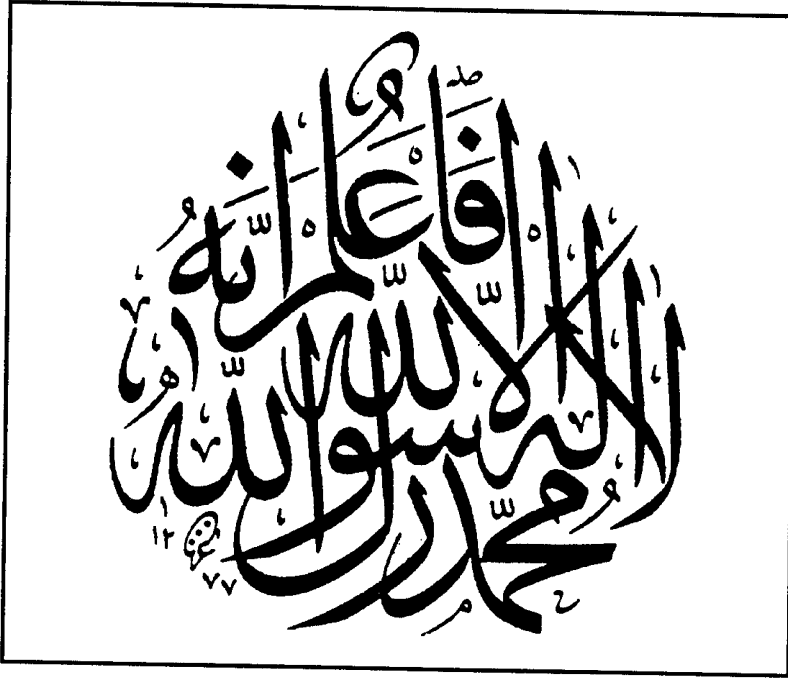 فَاعْلَمْ أَنَّهُ
لَا إِلٰهَ إِلَّا اللّٰهُ
مُحَمَّدٌ رَسُولُ اللّٰهِ